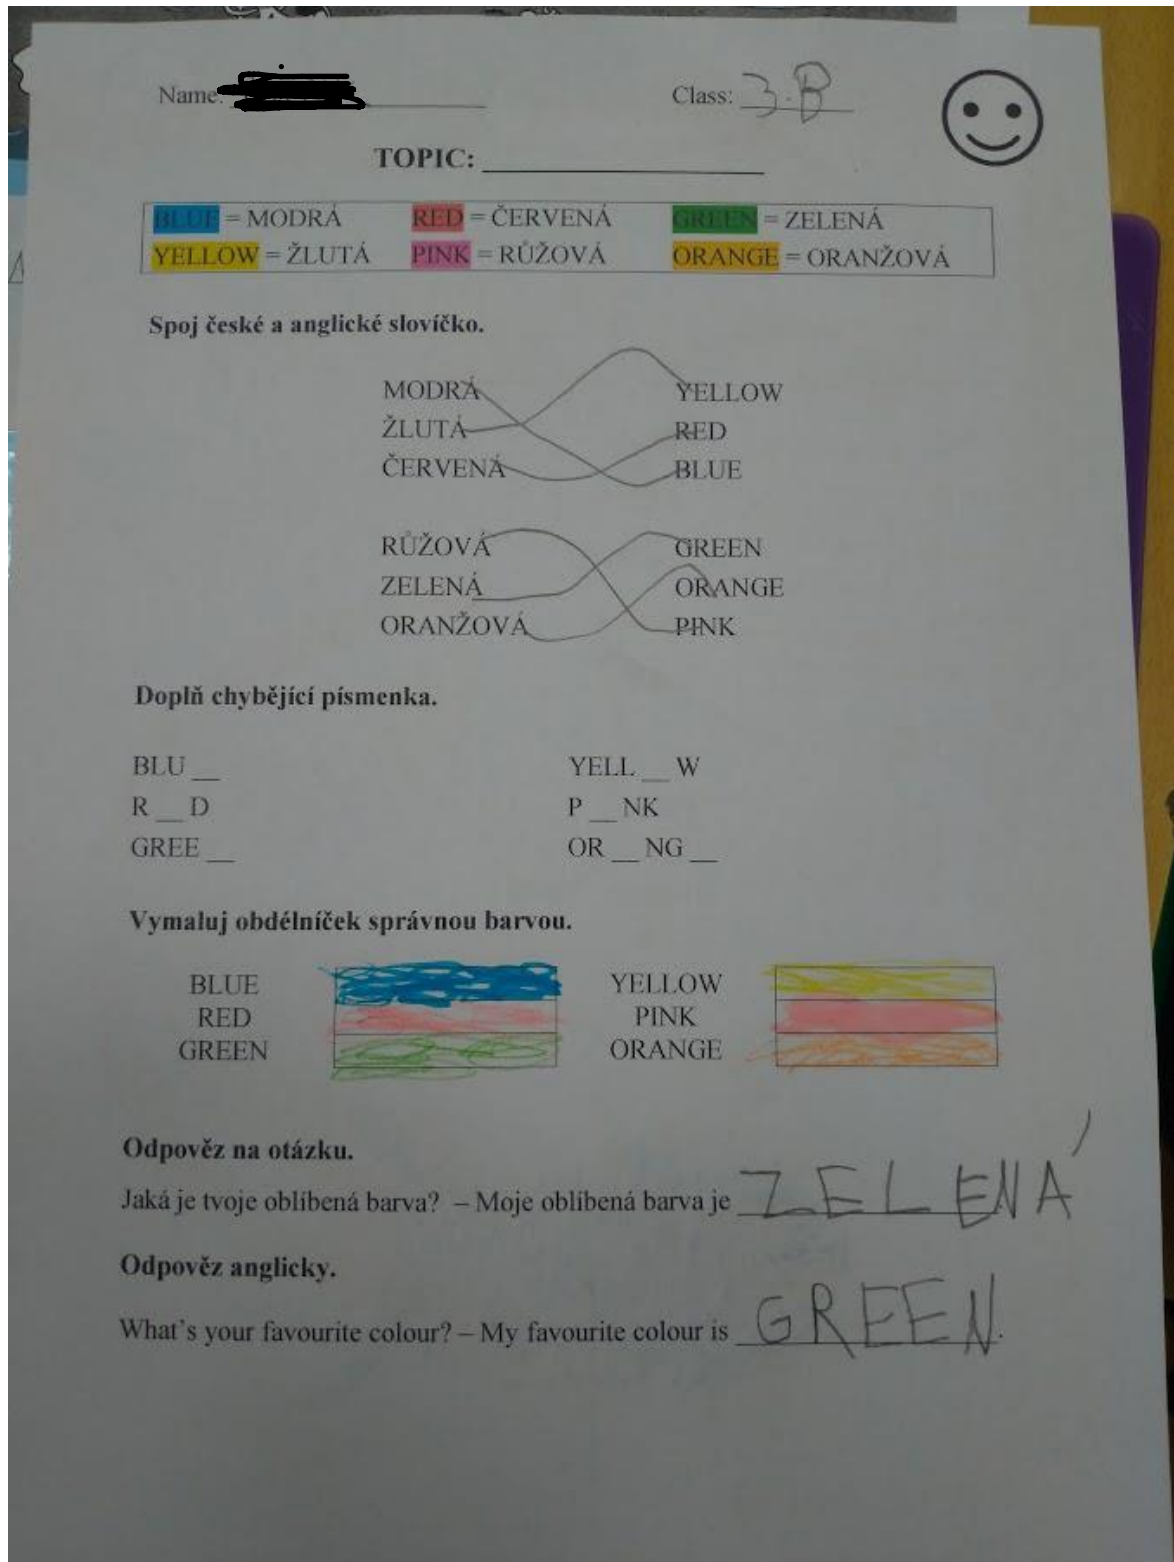 Name: Class: 3.B
TOPIC:
BLUE = MODRÁ RED = ČERVENÁ GREEN = ZELENÁ
YELLOW = ŽLUTÁ PINK = RŮŽOVÁ ORANGE = ORANŽOVÁ
Spoj české a anglické slovíčko.
MODRÁ YELLOW
ŽLUTÁ RED
ČERVENÁ BLUE
RŮŽOVÁ GREEN
ZELENÁ ORANGE
ORANŽOVÁ PINK
Doplň chybějící písmenka.
BLU __ YELL __ W
R __ D P __ NK
GREE __ OR __ NG __
Vymaluj obdélníček správnou barvou.
BLUE YELLOW
RED PINK
GREEN ORANGE
Odpověz na otázku.
Jaká je tvoje oblíbená barva? – Moje oblíbená barva je ZELENÁ
Odpověz anglicky.
What's your favourite colour? – My favourite colour is GREEN.